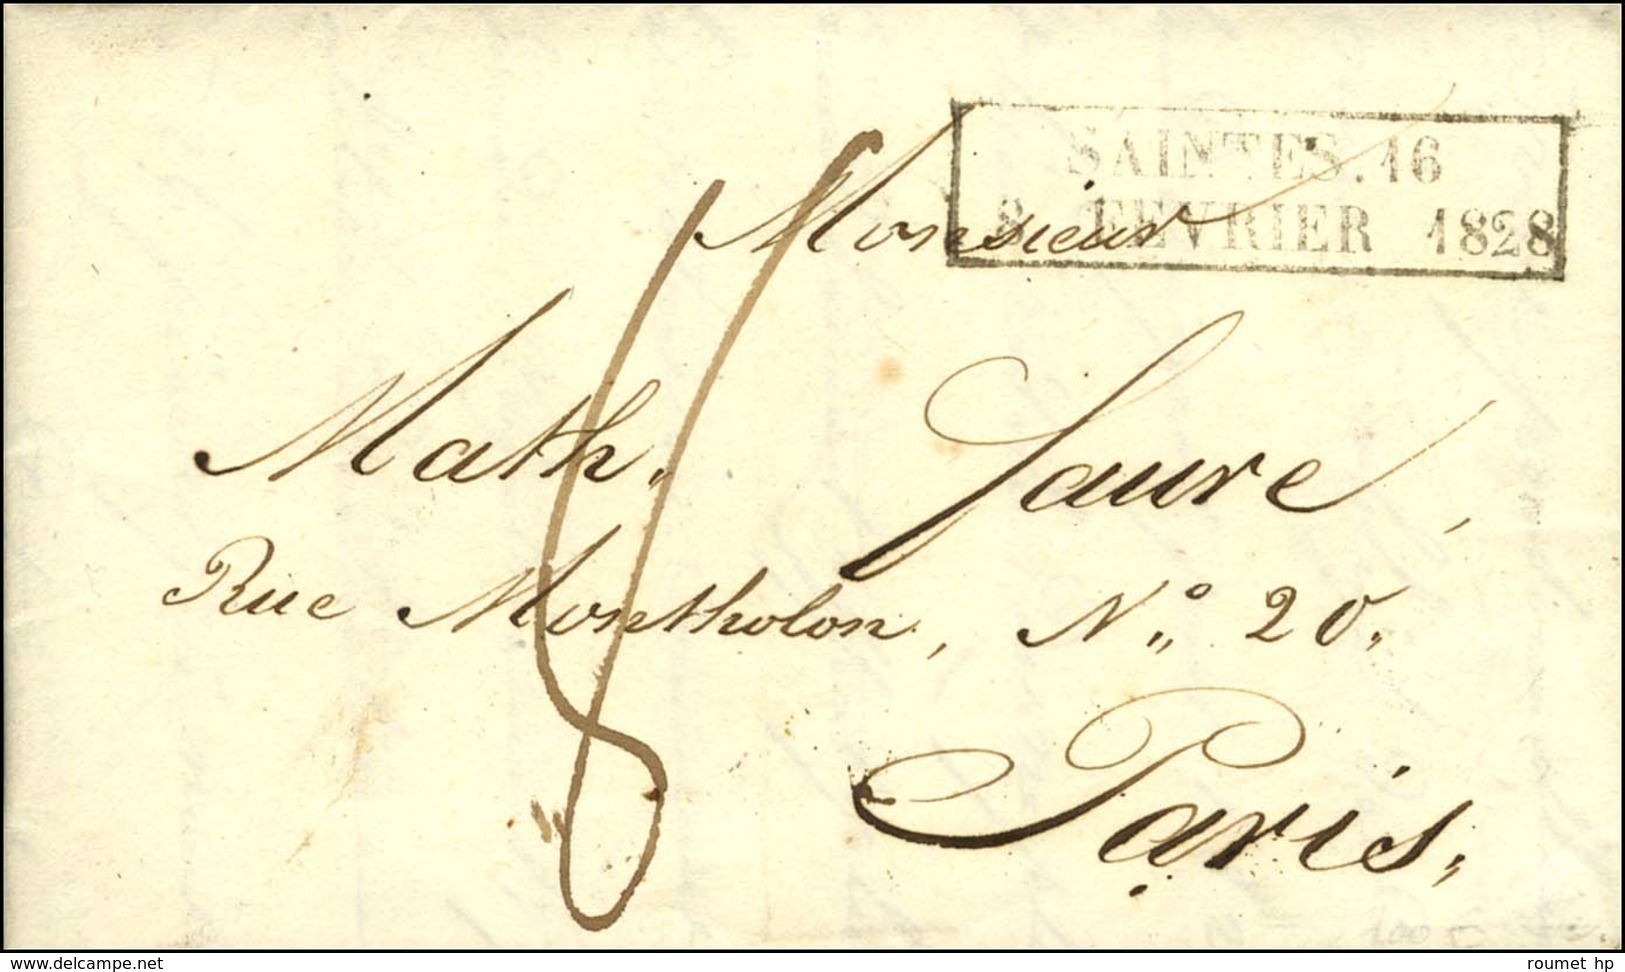 SAINTES. 16
8 FEVRIER 1828
Monsieur
Math. Faure,
Rue Montholon, No. 20.
Paris.
8
www.delcampe.net
roumet hp